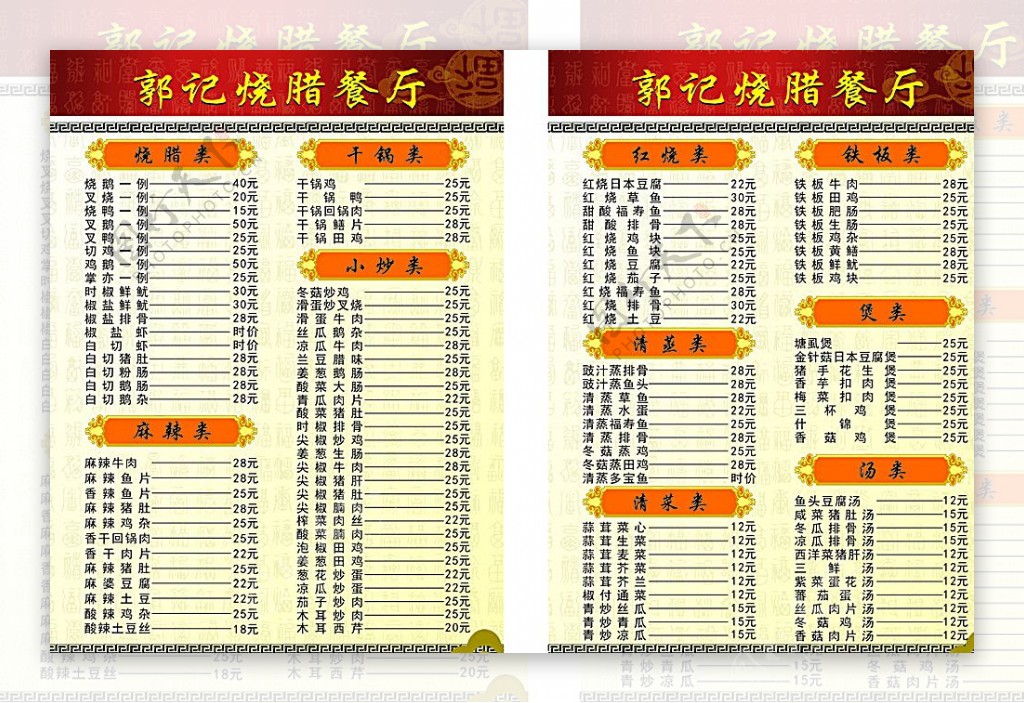 郭记烧腊餐厅
烧腊类
烧鹅一例 40元
叉烧一例 20元
烧鸭一例 15元
叉鹅一例 50元
叉鸭一例 25元
切鸡一例 25元
鸡鹅一例 50元
掌亦一例 25元
时椒鲜鱿 30元
椒盐鲜鱿 30元
椒盐排骨 28元
椒盐虾 时价
白切虾 时价
白切猪肚 28元
白切粉肠 28元
白切鹅肠 28元
白切鹅杂 28元
麻辣类
麻辣牛肉 28元
麻辣鱼片 28元
香辣鱼片 25元
麻辣猪肚 28元
麻辣鸡杂 25元
香干回锅肉 25元
香干肉片 22元
麻辣猪肚 25元
麻婆豆腐 22元
麻辣土豆 22元
酸辣鸡杂 25元
酸辣土豆丝 18元
干锅类
干锅鸡 25元
干锅鸭 25元
干锅回锅肉 25元
干锅鳝片 28元
干锅田鸡 28元
小炒类
冬菇炒鸡 25元
滑蛋炒叉烧 25元
滑蛋牛肉 25元
丝瓜鹅杂 25元
凉瓜牛肉 28元
兰豆腊味 25元
姜葱鹅肠 28元
酸菜大肠 25元
青瓜肉片 22元
酸菜猪肚 25元
时椒排骨 25元
尖椒炒鸡 25元
姜葱生肠 28元
尖椒牛肉 28元
尖椒猪肝 25元
尖椒猪肚 25元
尖椒腩肉 25元
榨菜肉丝 22元
酸菜腩肉 25元
泡椒田鸡 25元
姜葱田鸡 25元
葱花炒蛋 22元
凉瓜炒蛋 22元
茄子炒肉 25元
木耳炒肉 25元
木耳西芹 20元
郭记烧腊餐厅
红烧类
红烧日本豆腐 22元
红烧草鱼 30元
甜酸福寿鱼 28元
甜酸排骨 28元
红烧鸡块 25元
红烧鱼块 25元
红烧豆腐 22元
红烧茄子 25元
红烧福寿鱼 28元
红烧排骨 30元
红烧土豆 22元
清蒸类
豉汁蒸排骨 28元
豉汁蒸鱼头 28元
清蒸草鱼 28元
清蒸水蛋 22元
清蒸福寿鱼 25元
清蒸排骨 28元
冬菇蒸鸡 25元
冬菇蒸田鸡 28元
清蒸多宝鱼 时价
清菜类
蒜茸菜心 12元
蒜茸生菜 12元
蒜茸麦菜 12元
蒜茸芥菜 12元
蒜茸芥兰 12元
椒付通菜 12元
青炒丝瓜 15元
青炒青瓜 15元
青炒凉瓜 15元
铁板类
铁板牛肉 28元
铁板田鸡 28元
铁板肥肠 25元
铁板生肠 25元
铁板鸡杂 25元
铁板黄鳝 28元
铁板鲜鱿 28元
铁板鸡块 25元
煲类
塘虱煲 25元
金针菇日本豆腐煲 25元
猪手花生煲 25元
香芋扣肉煲 25元
梅菜扣肉煲 25元
三杯鸡煲 25元
什锦煲 25元
香菇鸡煲 25元
汤类
鱼头豆腐汤 12元
咸菜猪肚汤 15元
冬瓜排骨汤 15元
凉瓜排骨汤 15元
西洋菜猪肝汤 12元
三鲜汤 12元
紫菜蛋花汤 12元
蕃茄蛋汤 12元
丝瓜肉片汤 12元
冬菇鸡汤 15元
香菇肉片汤 12元